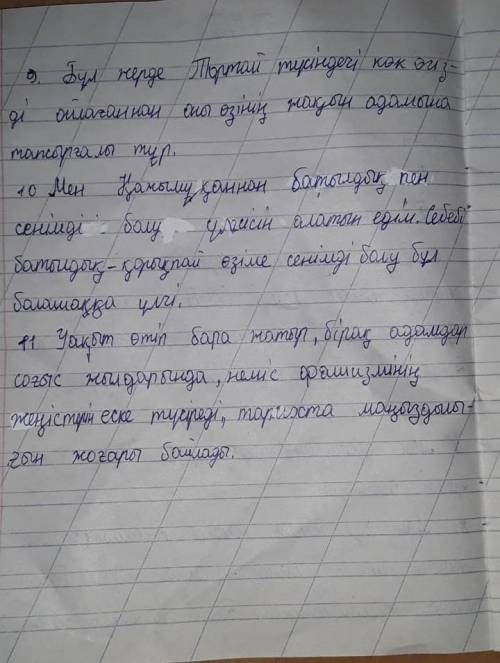 9. Бұл жерде Тортай түсіндегі көк өгіз-
ді ойлағаннан оны өзінің жақын адамына
тапсырғалы тұр.
10 Мен батылдық пен
сенімді болу үлгісін алатын едім. Себебі
батылдық-қорықпай өзіме сенімді болу бұл
болашаққа үлгі.
11 Уақыт өтіп бара жатыр, бірақ адамдар
соғыс жылдарында, неміс фашизмінің
жеңістерін еске түсіреді, тарихта маңыздылы-
ғын жоғары бағалады.